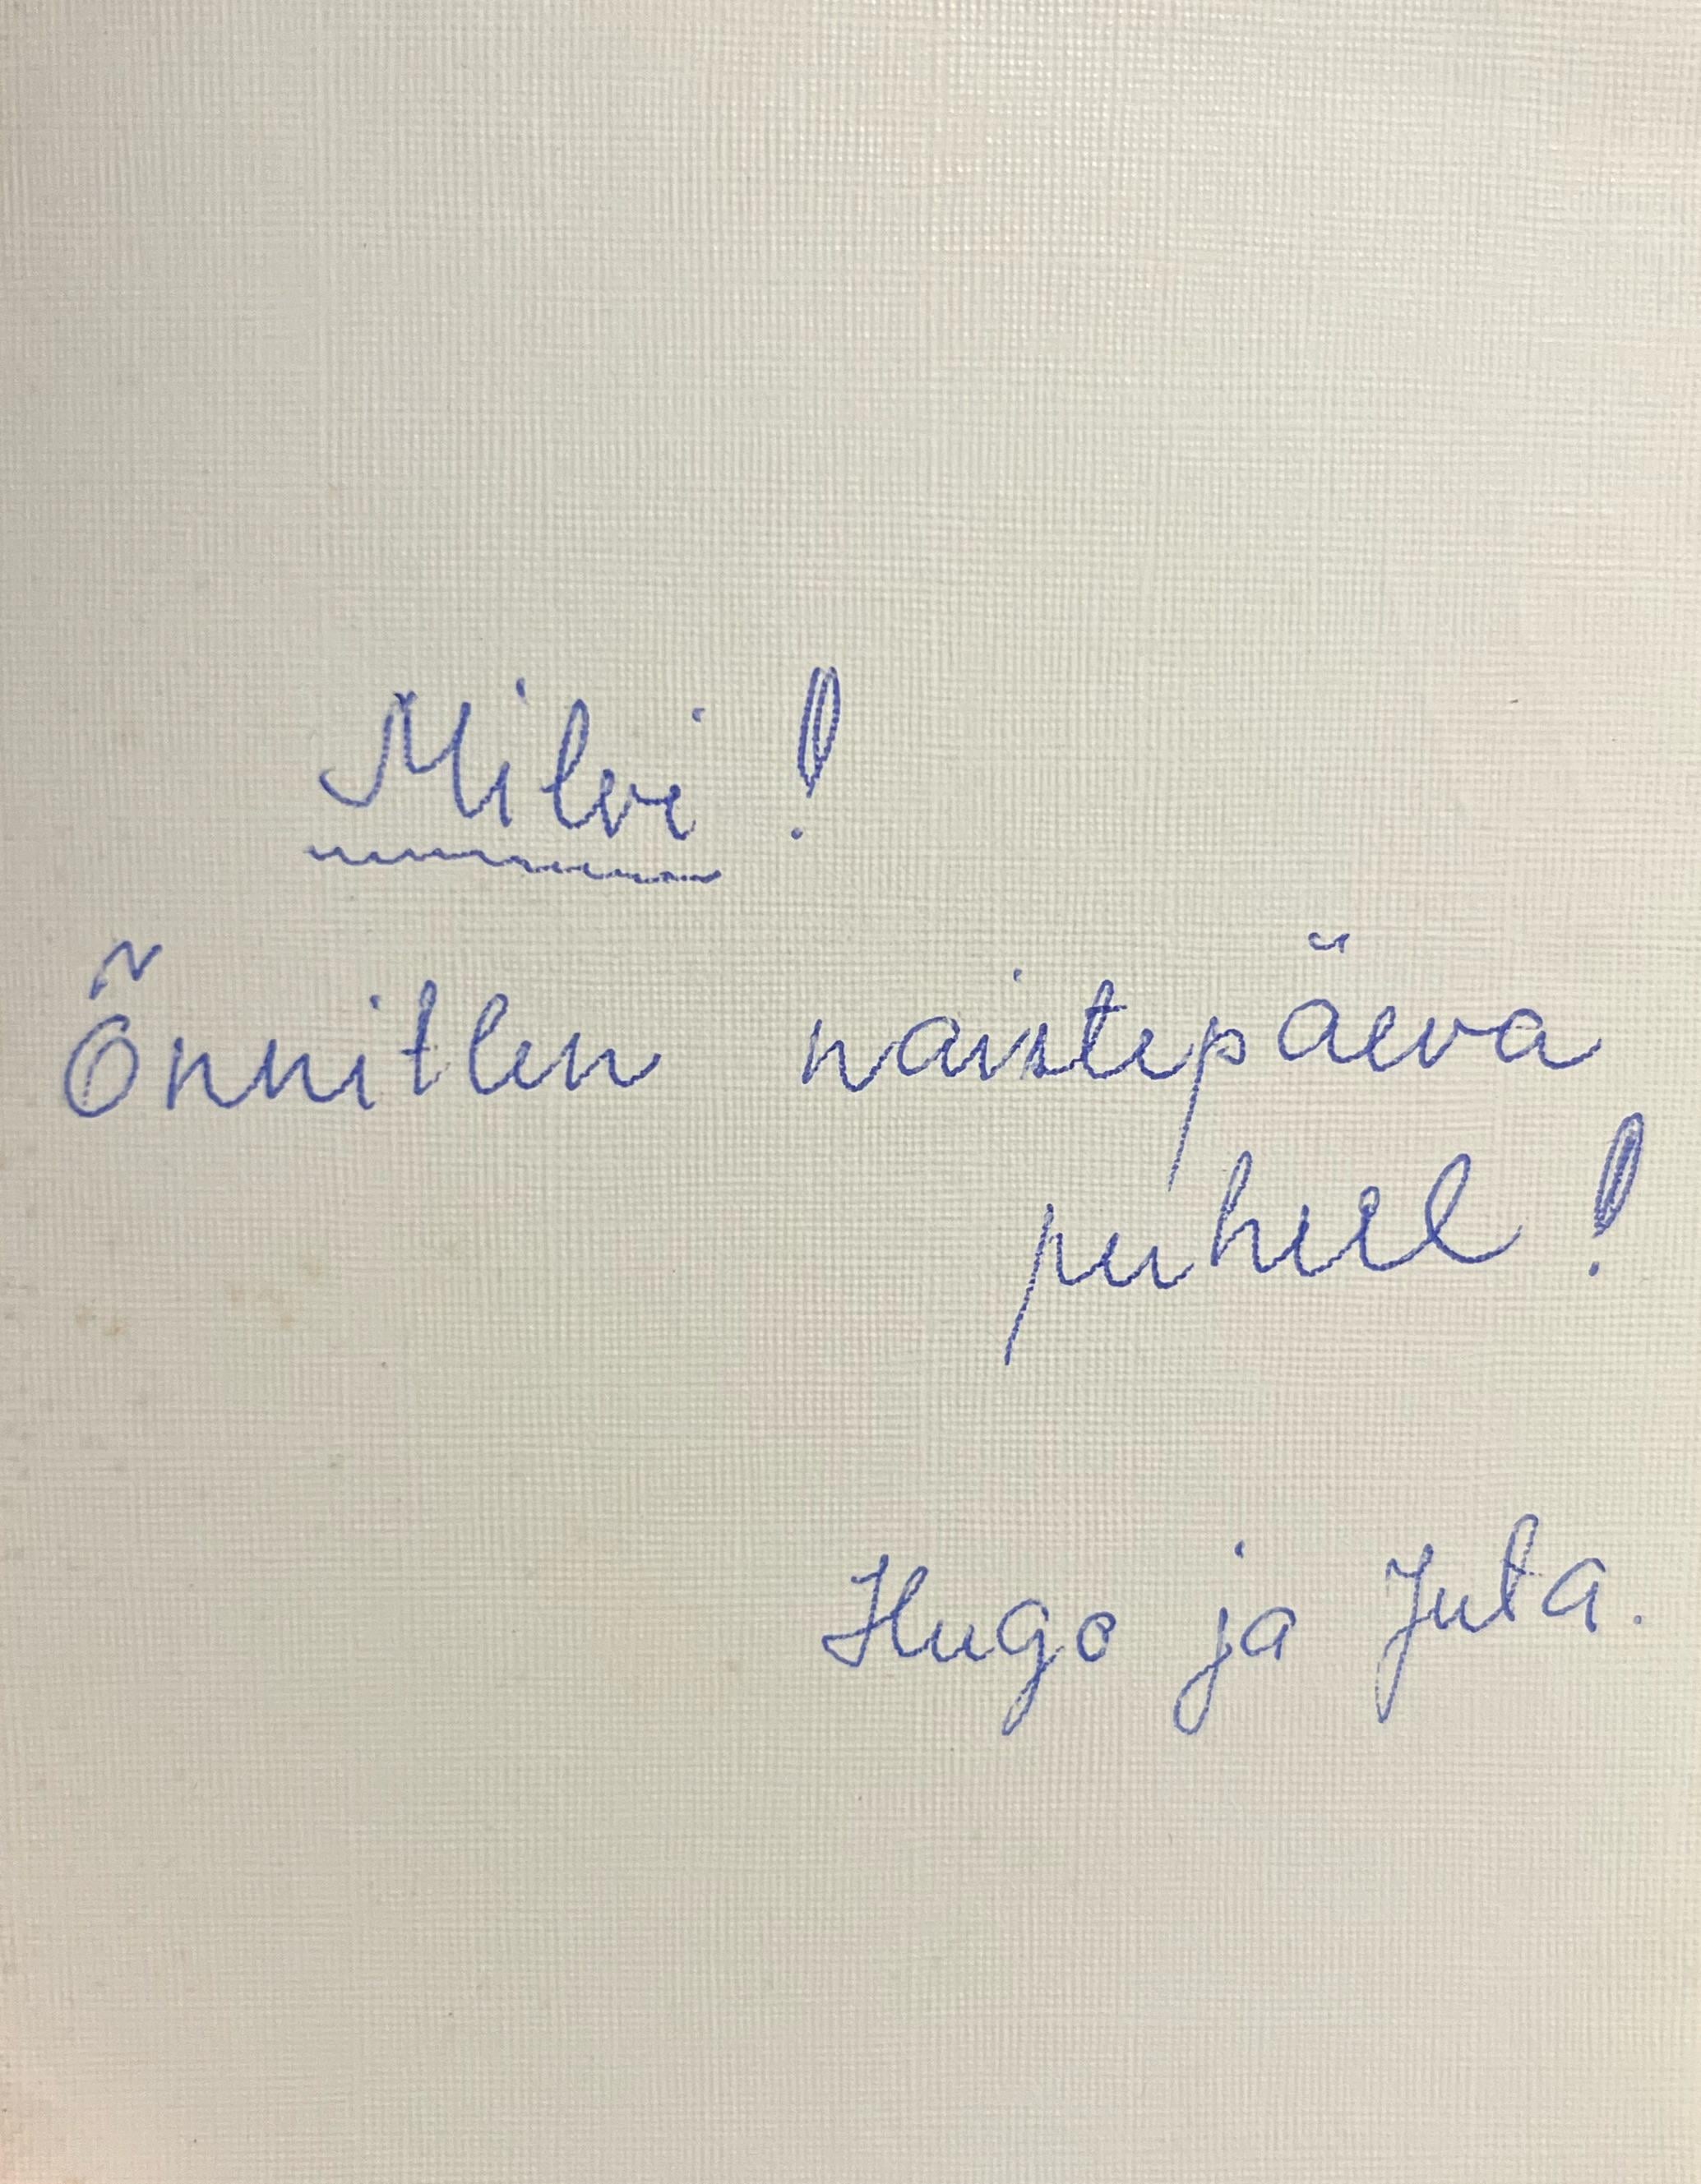 Milvi!
Õnnitlen naistepäeva
puhul!
Hugo ja Juta.